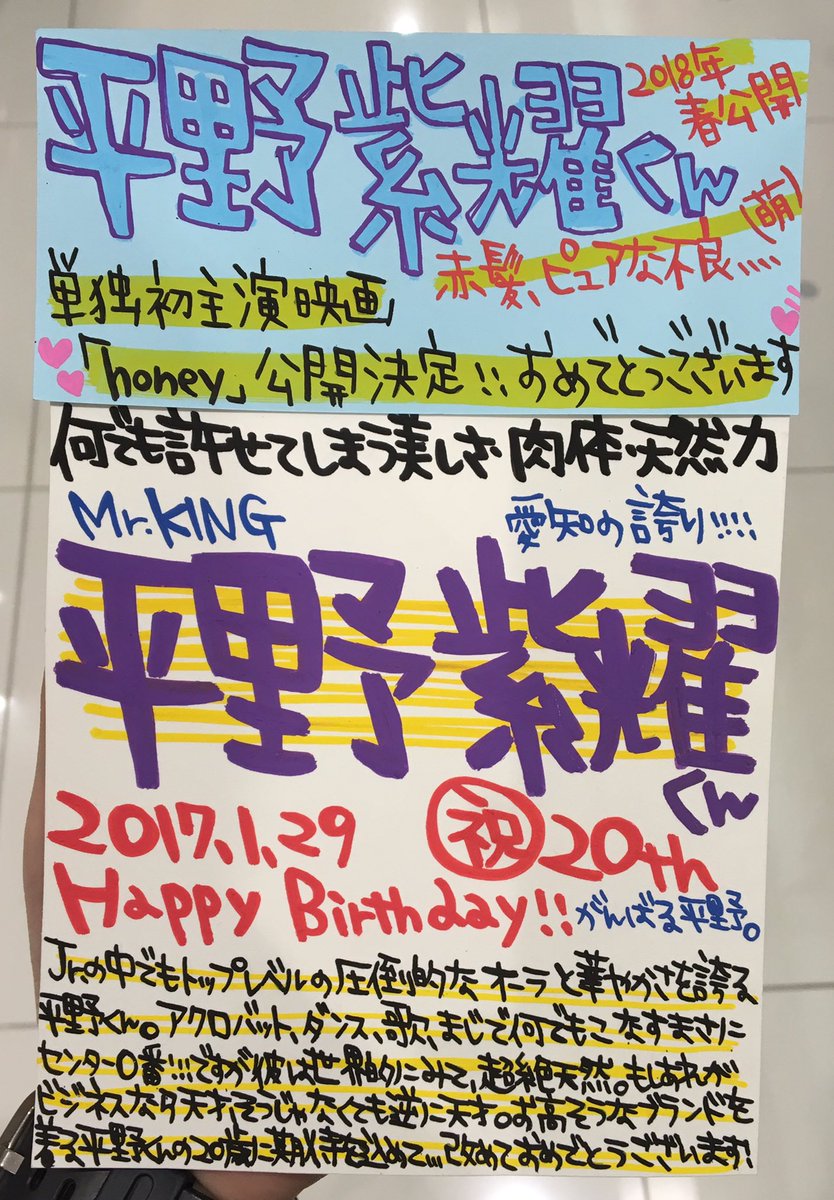 平野紫耀くん
2018年
春公開
赤髪、ピュアな不良....(萌)
単独初主演映画
「honey」公開決定!!おめでとうございます
何でも許せてしまう美しさ 肉体・天然力
Mr.KING 愛知の誇り!!!!
平野紫耀くん
2017.1.29 ㊗20th
Happy Birthday!! がんばる平野。
Jr.の中でもトップレベルの圧倒的なオーラと華やかさを誇る
平野くん。アクロバット、ダンス、歌、まじで何でもこなすまさに
センター0番!!!ですが彼は世界的にみて、超絶天然。もしあれが
ビジネスなら天才、そうじゃなくても逆に天才。お高そうなブランドを
着る平野くんの20歳に期待を込めて...改めておめでとうございます!